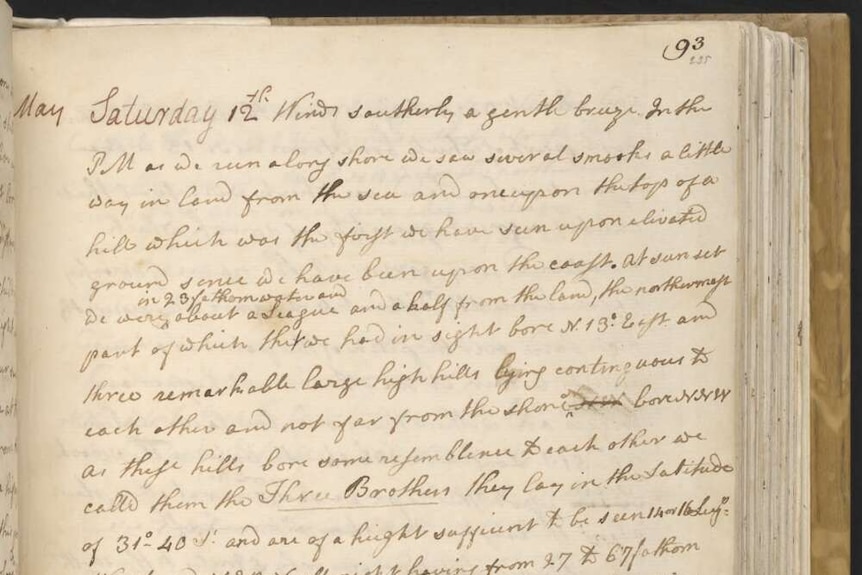 93
225
May Saturday 12th. Winds southerly a gentle breeze. In the
PM as we run along shore we saw several smooks a little
way in land from the sea and one upon the top of a
hill which was the first we have seen upon elivated
ground sence we have been upon the coast. At sun set
in 23 fathom water and
we were about a League and a half from the land, the northermost
part of which that we had in sight bore N. 13° East. and
three remarkable large high hills lying continguous to
each other and not far from the shore bore NNW
as these hills bore some resemblence to each other we
call'd them the Three Brothers they lay in the Latitude
of 31°..40 S. and are of a height sufficient to be seen 14 or 16 Leagˢ:
having from 27 to 67 fathom